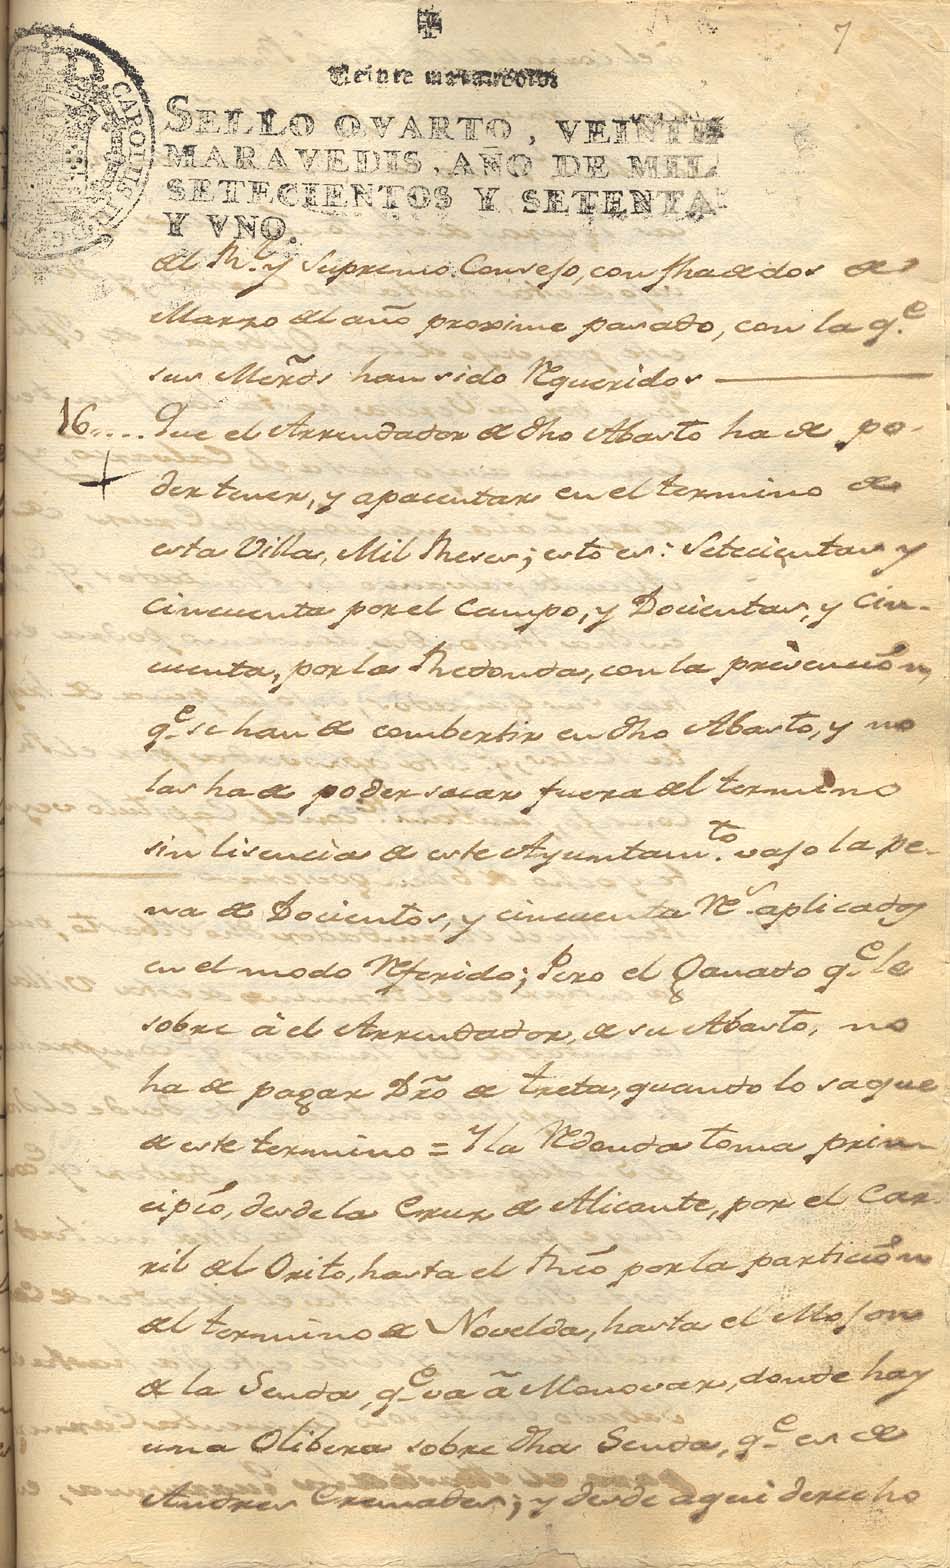 7
Veinte maravedis.
SELLO QVARTO, VEINTE
MARAVEDIS, AÑO DE MIL
SETECIENTOS Y SETENTA
Y VNO.
CAROLUS III D G
del Rl. y Supremo Consejo, con fha de dos de
Marzo del año proximo pasado, con la qe.
sus Mer̃ds han sido Requeridos
16.... Que el Arrendador de dho Abasto ha de po-
der tener, y apacentar en el termino de
esta Villa, Mil Reses; esto es: Setecientas y
cincuenta por el Campo, y Docientas, y cin-
cuenta, por la Redonda, con la prevencion,
qe. se han de combertir en dho Abasto, y no
las ha de poder sacar fuera del termino
sin lisencia de este Ayuntamto. vajo la pe-
na de Docientos, y cincuenta Rs. aplicados
en el modo Referido; Pero el Ganado qe. le
sobre à el Arrendador, de su Abasto, no
ha de pagar Dr̃o de treta, quando lo saque
de este termino = Y la Redonda toma prin-
cipio, desde la Cruz de Alicante, por el Car-
ril del Orito, hasta el Rio por la particion
del termino de Novelda, hasta el Mojon
de la Senda, qe. va à Monovar, donde hay
una Olibera sobre dha Senda, qe. es de
Andres Cremades; y desde aqui derecho